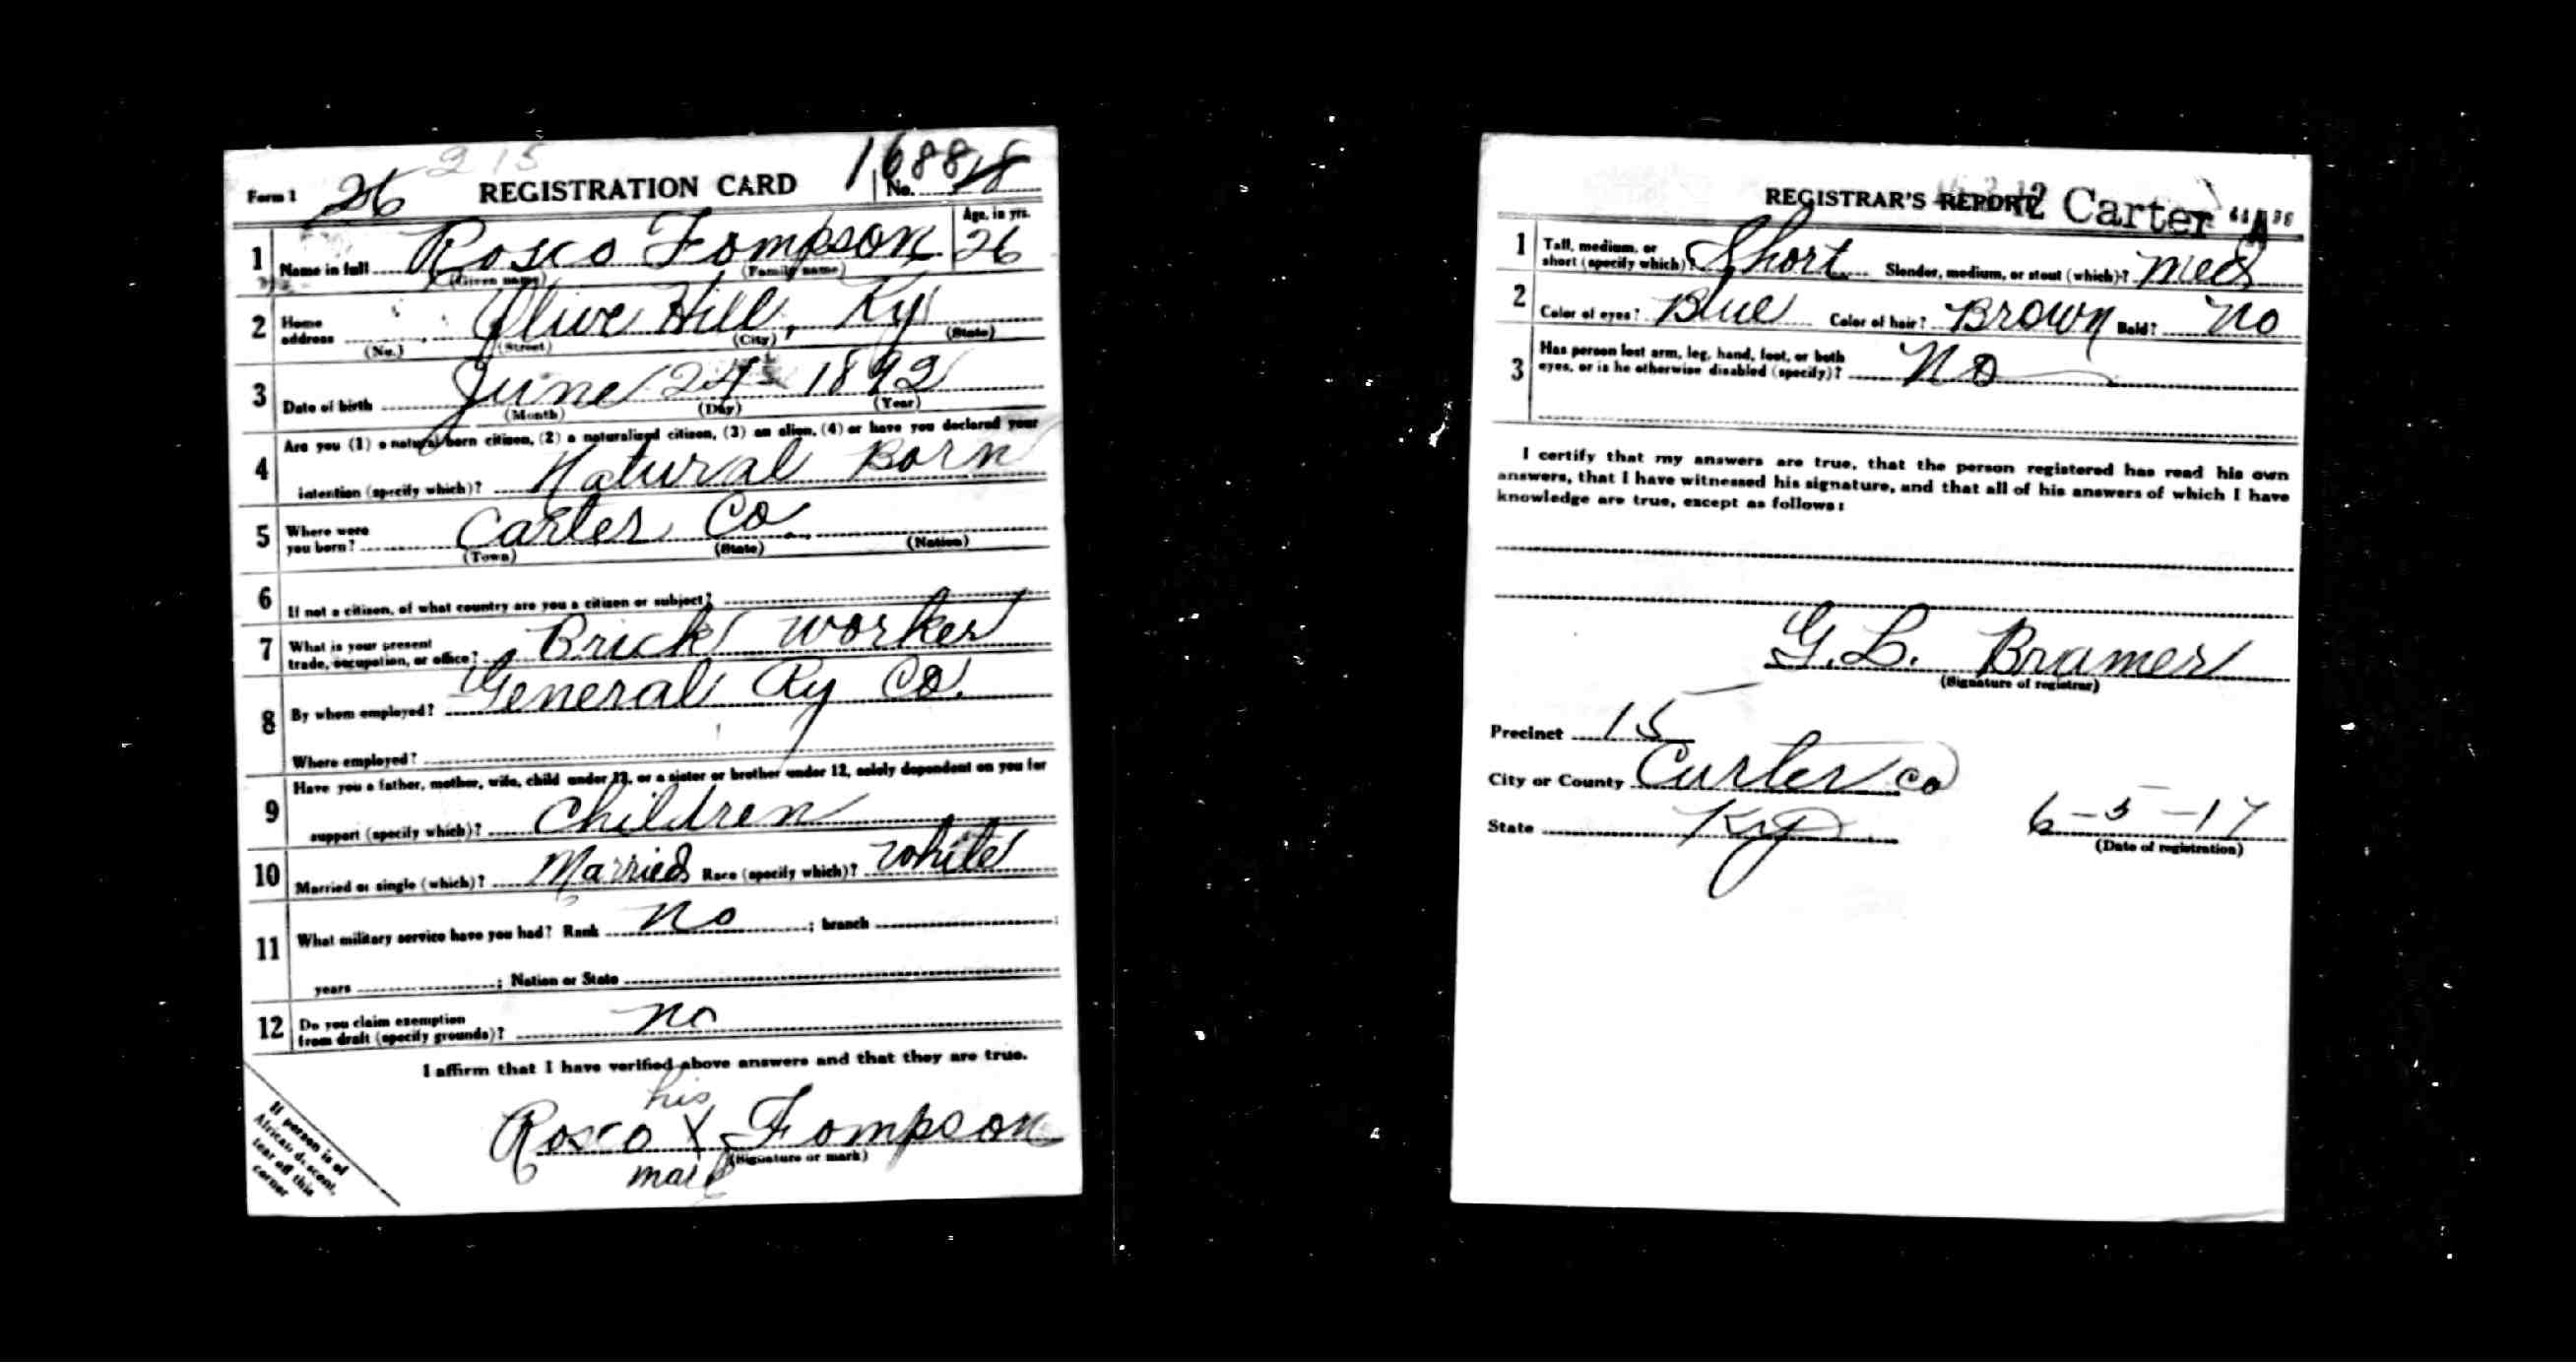 215
Form 1 26 REGISTRATION CARD No. 168818
1 Name in full Rosco Fompson Age, in yrs. 26
(Given name) (Family name)
2 Home address Olive Hill, Ky
(No.) (Street) (City) (State)
3 Date of birth June 24 1892
(Month) (Day) (Year)
4 Are you (1) a natural-born citizen, (2) a naturalized citizen, (3) an alien, (4) or have you declared your
intention (specify which)? Natural Born
5 Where were you born? Carter Co
(Town) (State) (Nation)
6 If not a citizen, of what country are you a citizen or subject?
7 What is your present trade, occupation, or office? Brick worker
8 By whom employed? General Ry Co.
Where employed?
9 Have you a father, mother, wife, child under 12, or a sister or brother under 12, solely dependent on you for
support (specify which)? Children
10 Married or single (which)? Married Race (specify which)? White
11 What military service have you had? Rank No ; branch ;
years ; Nation or State
12 Do you claim exemption from draft (specify grounds)? No
I affirm that I have verified above answers and that they are true.
his
Rosco X Fompson
mark (Signature or mark)
If person is of
African descent,
tear off this
corner
REGISTRAR'S REPORT Carter "A"
1 Tall, medium, or short (specify which)? Short Slender, medium, or stout (which)? Med
2 Color of eyes? Blue Color of hair? Brown Bald? No
3 Has person lost arm, leg, hand, foot, or both
eyes, or is he otherwise disabled (specify)? No
I certify that my answers are true, that the person registered has read his own
answers, that I have witnessed his signature, and that all of his answers of which I have
knowledge are true, except as follows:
G. L. Bramer
(Signature of registrar)
Precinct 15
City or County Carter Co
State Ky 6-5-17
(Date of registration)